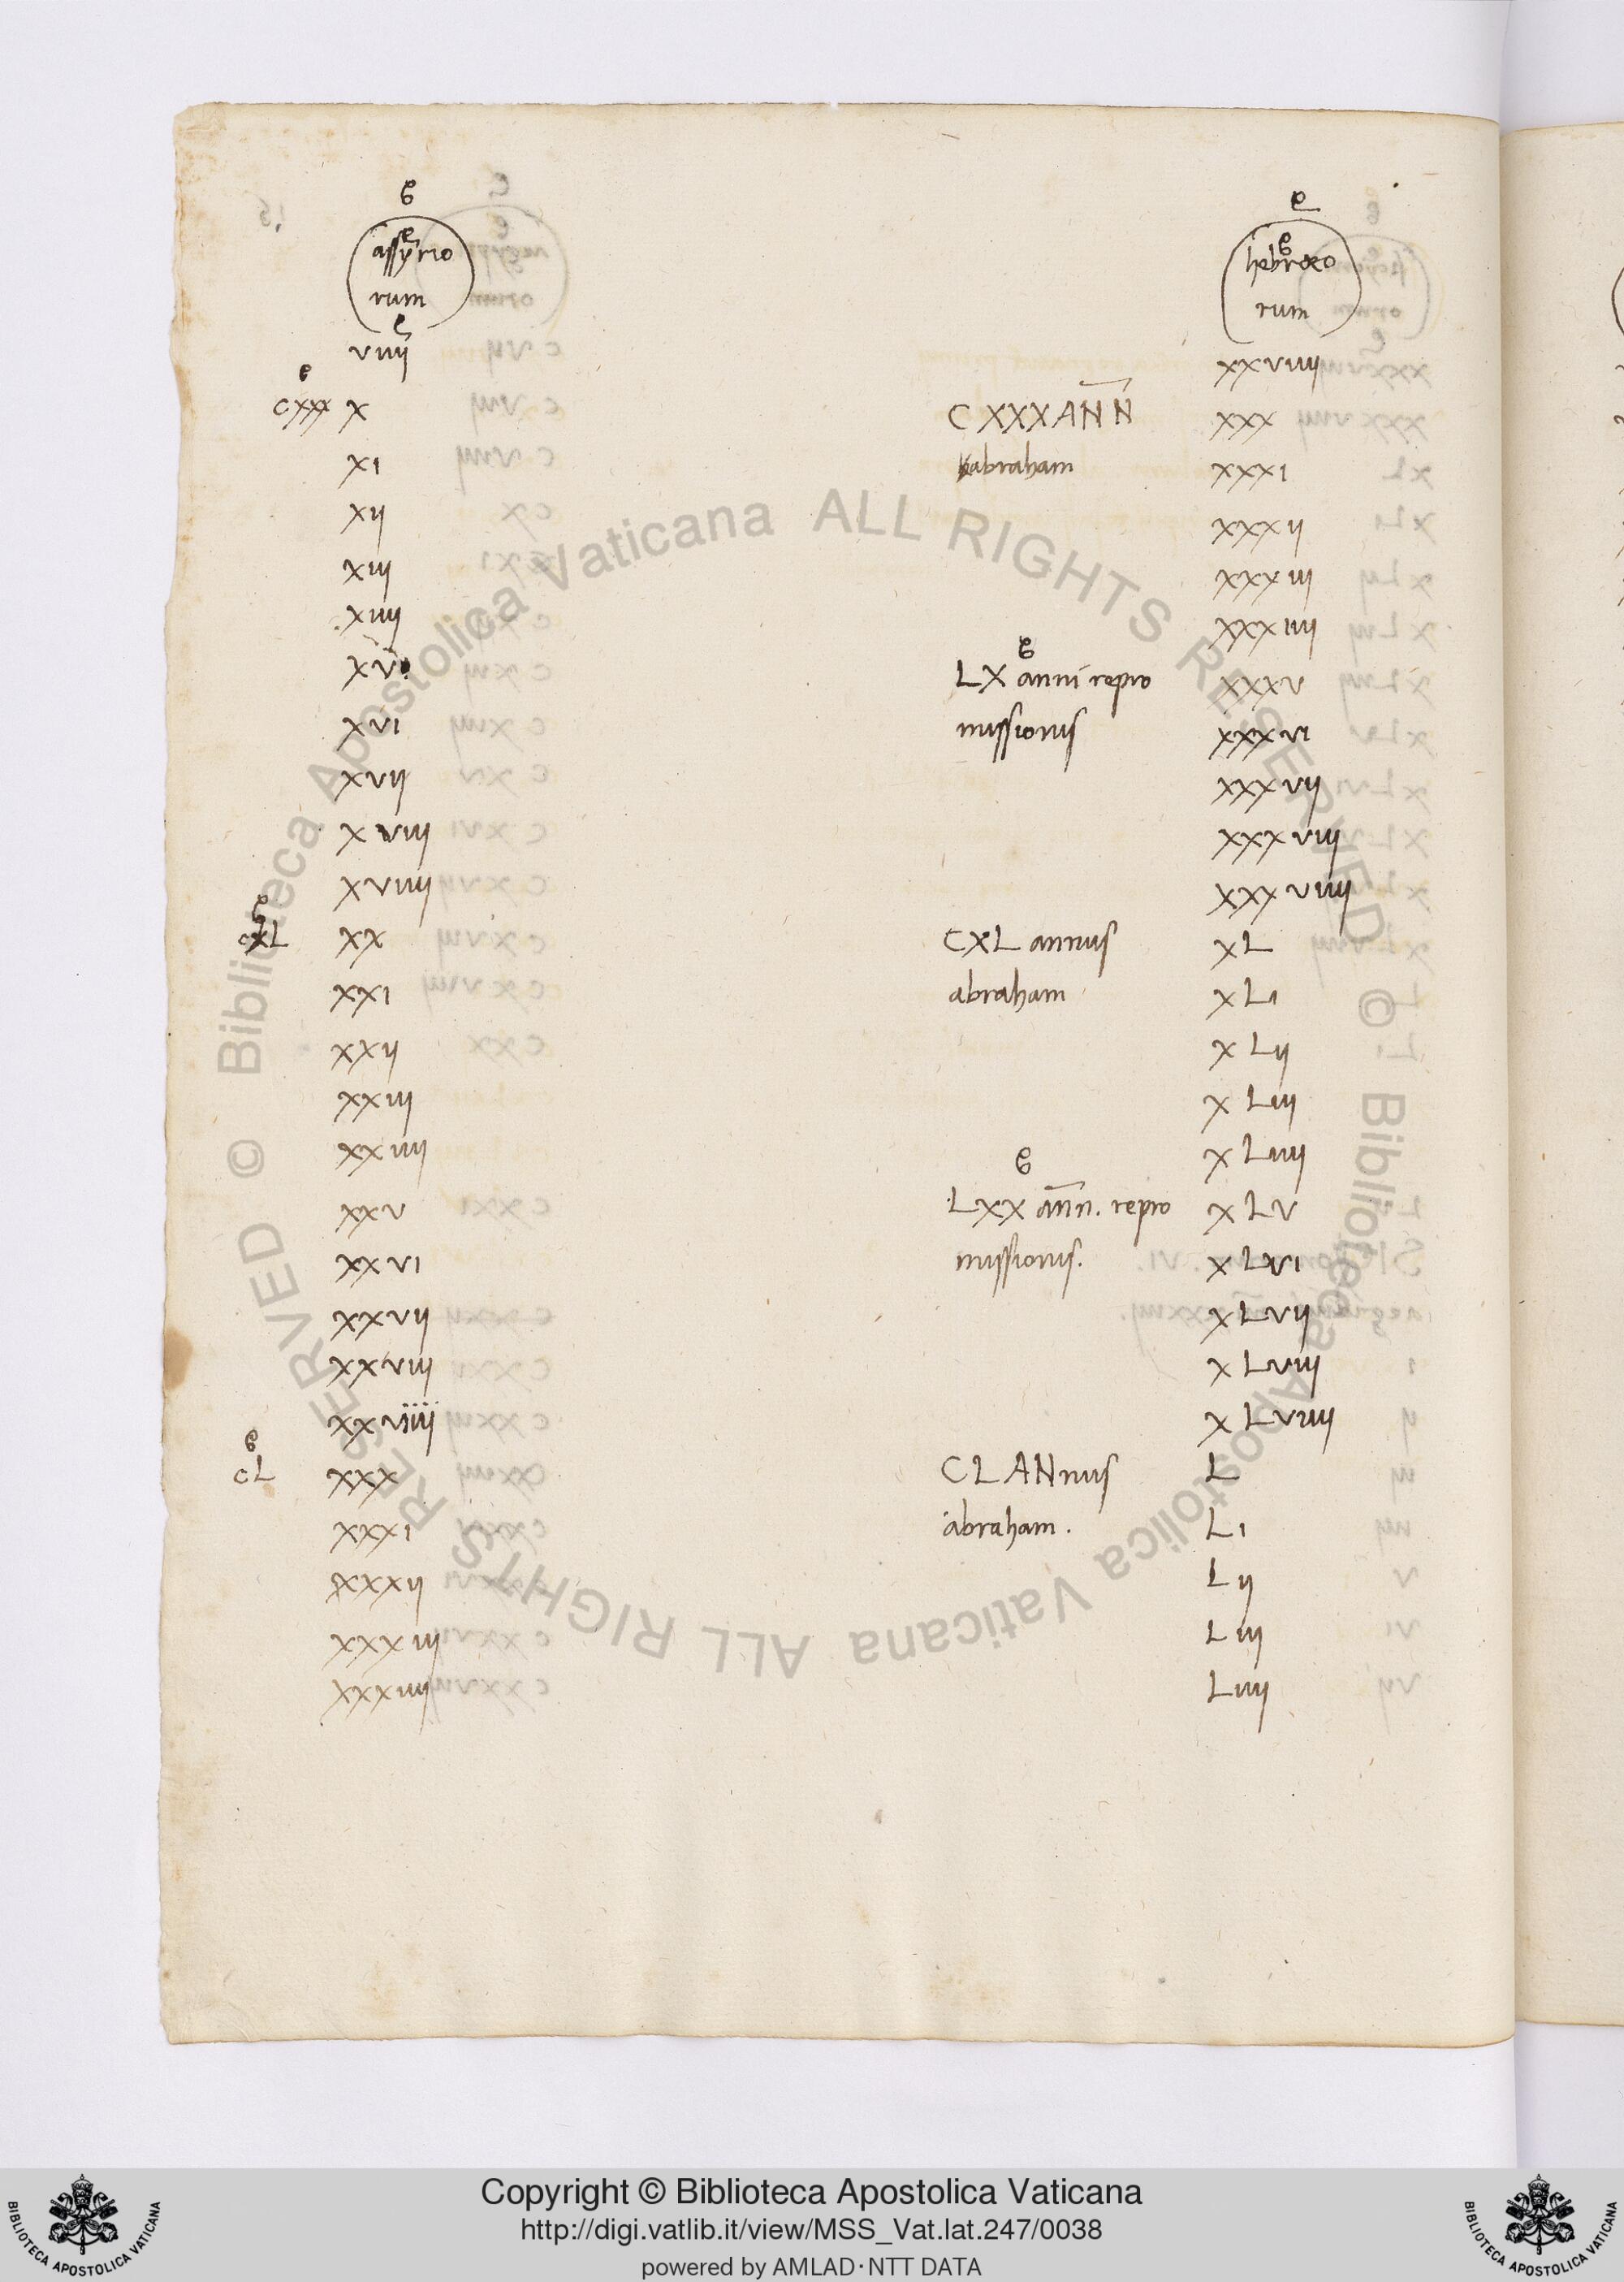 assyrio hebræo
rum rum
viiij xxviiij
cxxx x CXXXANN xxx
xi abraham xxxi
xij xxxij
xiij xxxiij
xiiij xxxiiij
xv LX anni repro xxxv
xvi missionis xxxvi
xvij xxxvij
xviij xxxviij
xviiij xxxviiij
cxL xx CXL annus xL
xxi abraham xLi
xxij xLij
xxiij xLiij
xxiiij xLiiij
xxv LXX ann. repro xLv
xxvi missionis. xLvi
xxvij xLvij
xxviij xLviij
xxviiij xLviiij
cL xxx CLANnus L
xxxi abraham. Li
xxxij Lij
xxxiij Liij
xxxiiij Liiij
© Biblioteca Apostolica Vaticana ALL RIGHTS RESERVED
© Biblioteca Apostolica Vaticana ALL RIGHTS RESERVED
Copyright © Biblioteca Apostolica Vaticana
http://digi.vatlib.it/view/MSS_Vat.lat.247/0038
powered by AMLAD·NTT DATA
BIBLIOTECA APOSTOLICA VATICANA
BIBLIOTECA APOSTOLICA VATICANA